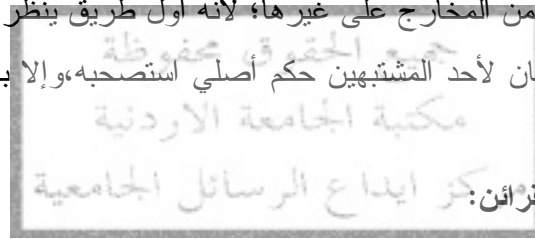 من المخارج على غيرها؛ لأنه أول طريق ينظر
جميع الحقوق محفوظة
لأحد المشتبهين حكم أصلي استصحبه،وإلا
مكتبة الجامعة الاردنية
مركز ايداع الرسائل الجامعية